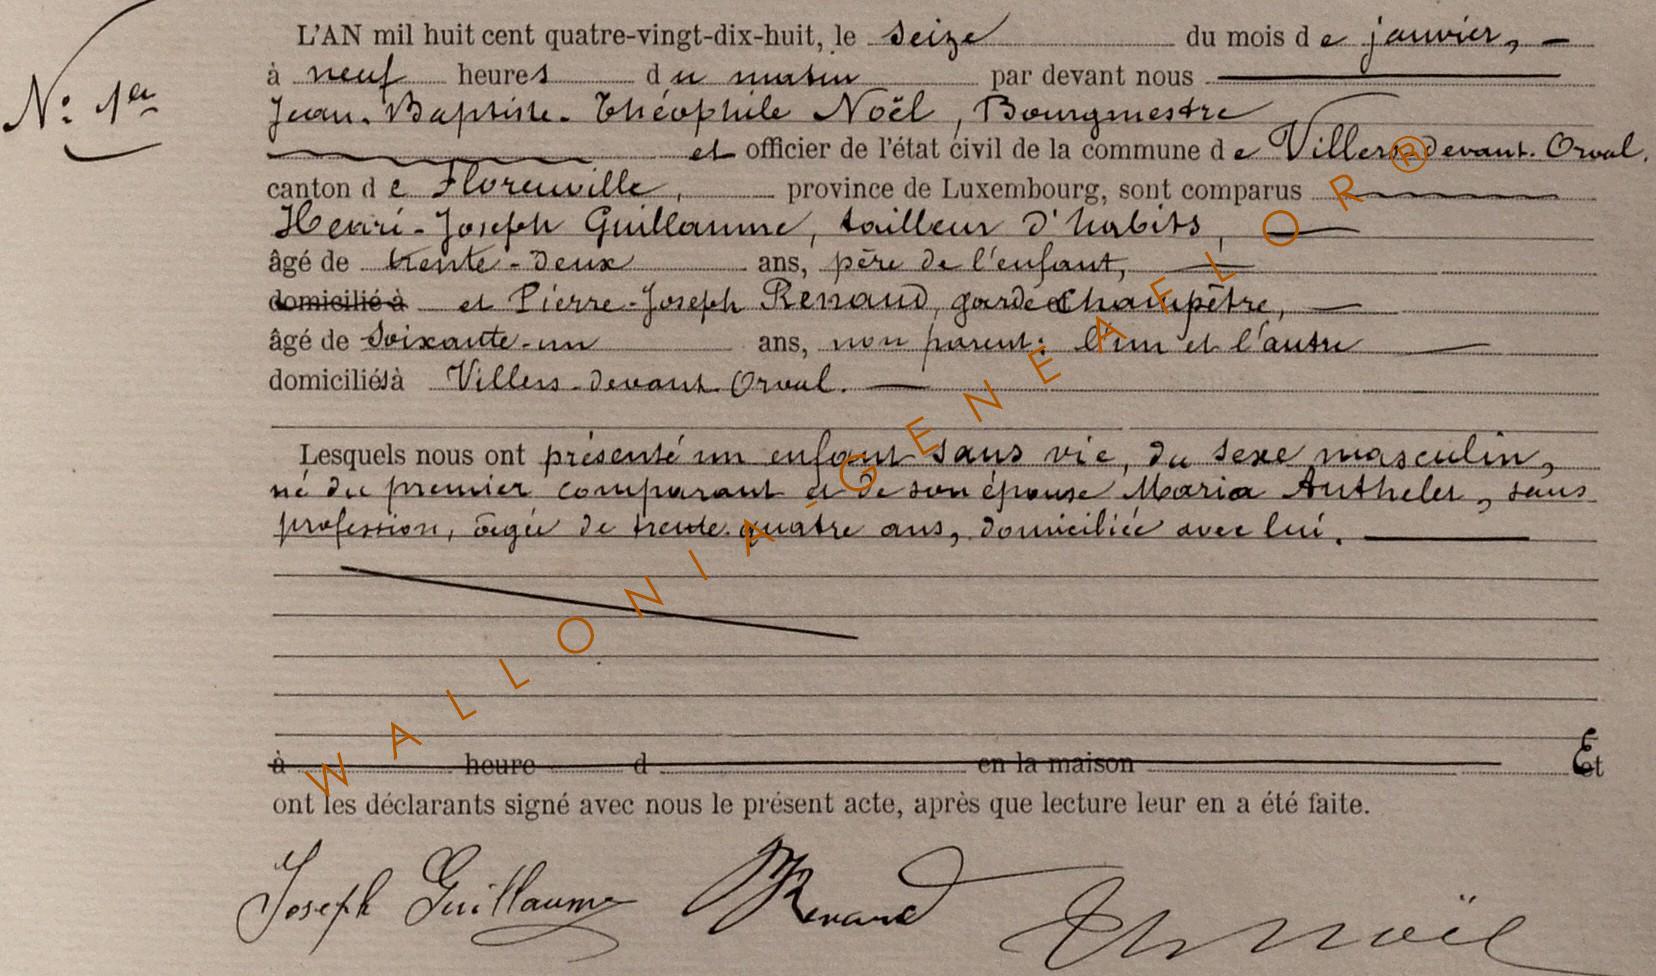 L'AN mil huit cent quatre-vingt-dix-huit, le seize du mois de janvier,
N° 1er
à neuf heures du matin par devant nous
Jean-Baptiste-Théophile Noël, Bourgmestre
et officier de l'état civil de la commune de Villers-devant-Orval,
canton de Florenville, province de Luxembourg, sont comparus
Henri-Joseph Guillaume, tailleur d'habits,
âgé de trente-deux ans, père de l'enfant,
domicilié à et Pierre-Joseph Renaud, garde champêtre,
âgé de soixante-un ans, non parent; l'un et l'autre
domiciliés à Villers-devant-Orval.
Lesquels nous ont présenté un enfant sans vie, du sexe masculin,
né du premier comparant et de son épouse Maria Anthelet, sans
profession, âgée de trente-quatre ans, domiciliée avec lui.
à heure d en la maison Et
ont les déclarants signé avec nous le présent acte, après que lecture leur en a été faite.
Joseph Guillaume Renaud Th Noël
WALLONIA-GENEAFLOR®